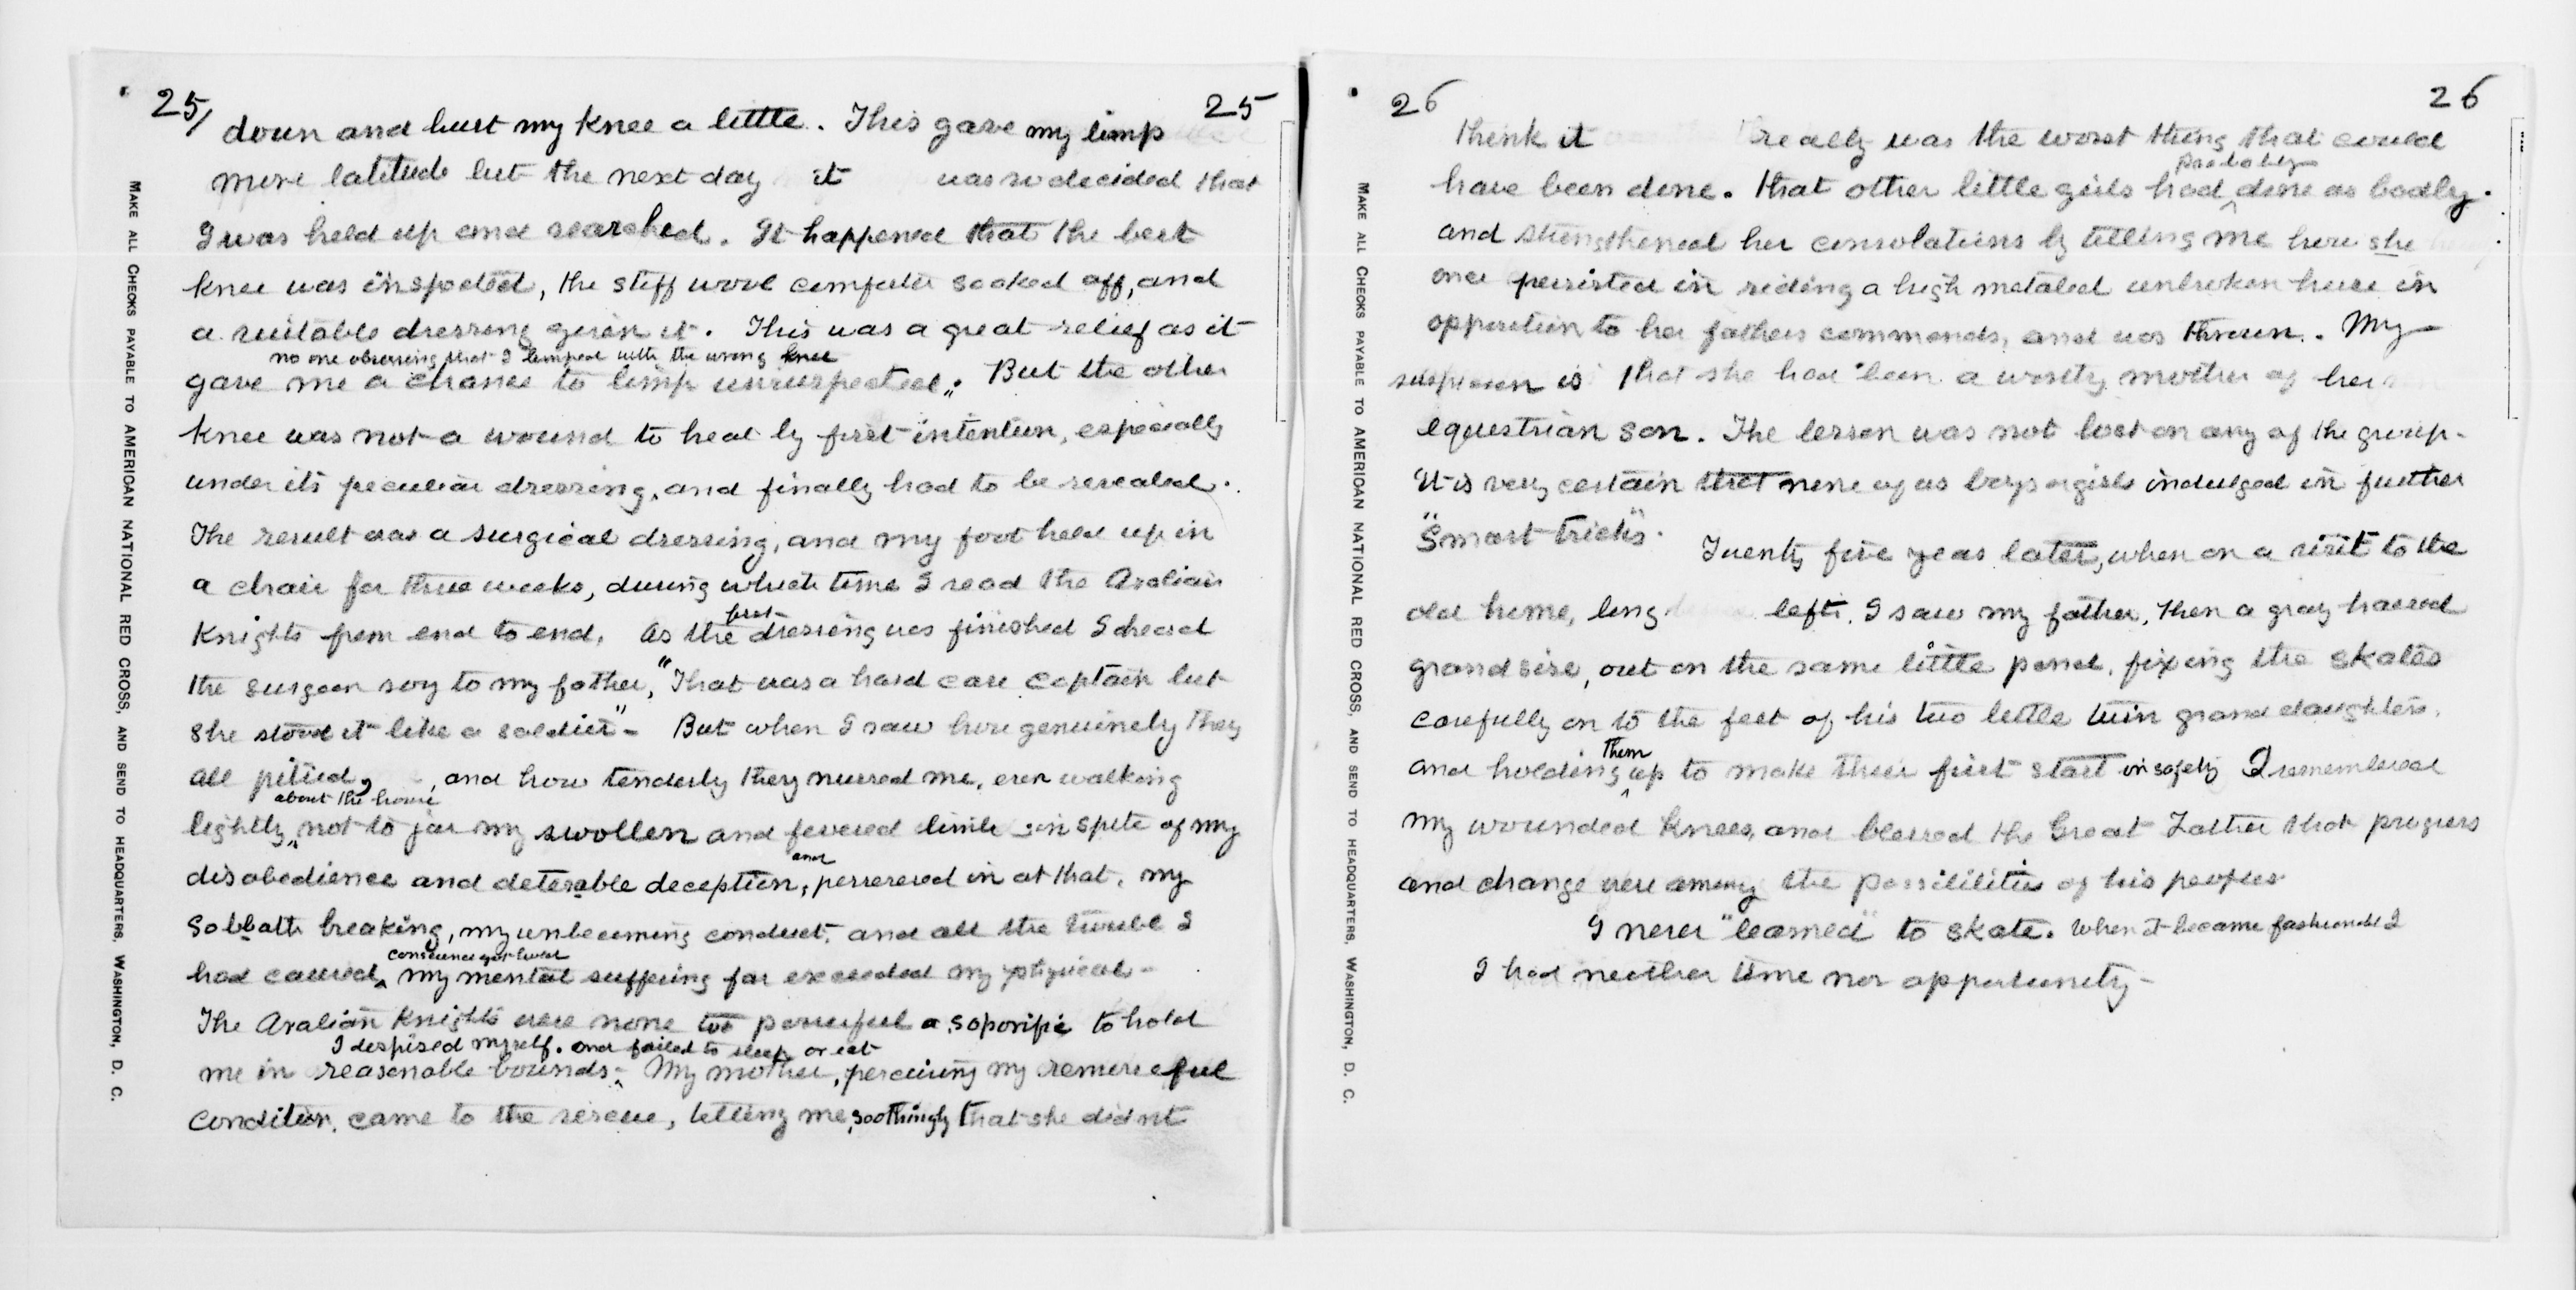 25/ 25
down and hurt my knee a little. This gave my limp
more latitude but the next day it was so decided that
I was held up and searched. It happened that the best
knee was inspected, the stiff wool comforter soaked off, and
a suitable dressing given it. This was a great relief as it
no one observing that I limped with the wrong knee
gave me a chance to limp unsuspected. But the other
knee was not a wound to heal by first intention, especially
under its peculiar dressing, and finally had to be revealed.
The result was a surgical dressing, and my foot held up in
a chair for three weeks, during which time I read the Arabian
first
Knights from end to end. As the dressing was finished I heard
the surgeon say to my father, "That was a hard case Captain but
she stood it like a soldier" - But when I saw how genuinely they
all pitied, and how tenderly they nursed me, even walking
about the house
lightly not to jar my swollen and fevered limbs in spite of my
and
disobedience and detesable deception, persevered in at that, my
Sabbath breaking, my unbecoming conduct, and all the trouble I
conscience
had caused, my mental suffering far exceeded my physical -
The Arabian Knights were none too powerful a soporific to hold
I despised myself. and failed to sleep or eat
me in reasonable bounds - My mother, perceiving my remorseful
condition, came to the rescue, telling me soothingly that she did nt
MAKE ALL CHECKS PAYABLE TO AMERICAN NATIONAL RED CROSS, AND SEND TO HEADQUARTERS, WASHINGTON, D. C.
26 26
think it really was the worst thing that could
probably
have been done. That other little girls had done as badly.
and strengthened her consolations by telling me how she
once persisted in riding a high metaled unbroken horse in
opposition to her fathers commands, and was thrown. My
suspicion is that she had been a worthy mother of her
equestrian son. The lesson was not lost on any of the group -
It is very certain that none of us boys or girls indulged in further
"Smart tricks".
Twenty five years later, when on a visit to the
old home, long left, I saw my father, then a gray haired
grandsire, out on the same little pond, fixing the skates
carefully on to the feet of his two little twin grand daughters,
them
and holding up to make their first start in safety I remembered
my wounded knees, and blessed the Great Father that progress
and change were among the possibilities of his peoples
I never "learned" to skate. When it became fashionable I
I had neither time nor opportunity -
MAKE ALL CHECKS PAYABLE TO AMERICAN NATIONAL RED CROSS, AND SEND TO HEADQUARTERS, WASHINGTON, D. C.